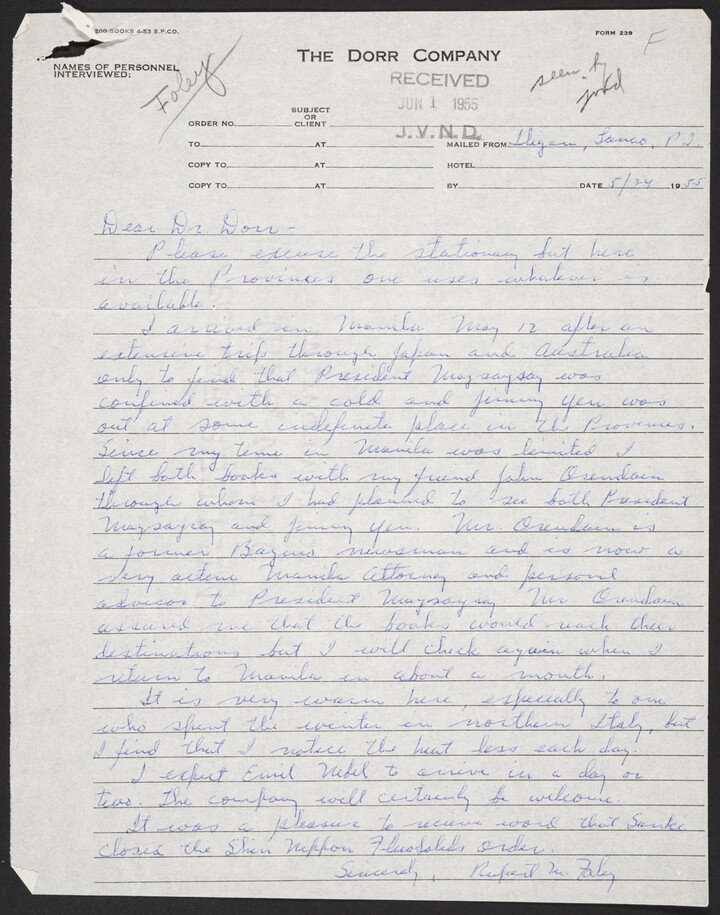 200 BOOKS 4-53 S.P.CO.
FORM 239
F
THE DORR COMPANY
NAMES OF PERSONNEL
INTERVIEWED:
Foley
RECEIVED
JUN 1 1955
J.V.N.D.
seen by
jvnd
SUBJECT
OR
ORDER NO. CLIENT
TO AT MAILED FROM: Iligan, Lanao, P.I.
COPY TO AT HOTEL
COPY TO AT BY DATE 5/24 1955
Dear Dr. Dorr -
Please excuse the stationary but here
in the Provinces one uses whatever is
available.
I arrived in Manila May 12 after an
extensive trip through Japan and Australia
only to find that President Magsaysay was
confined with a cold and Jimmy Yen was
out at some indefinite place in the Provinces.
Since my time in Manila was limited I
left both books with my friend John Orendain
through whom I had planned to see both President
Magsaysay and Jimmy Yen. Mr. Orendain is
a former Baguio newsman and is now a
very active Manila Attorney and personal
advisor to President Magsaysay. Mr. Orendain
assured me that the books would reach their
destinations but I will check again when I
return to Manila in about a month.
It is very warm here, especially to one
who spent the winter in northern Italy, but
I find that I notice the heat less each day.
I expect Emil Nebel to arrive in a day or
two. The company will certainly be welcome.
It was a pleasure to receive word that Sanki
closed the Shin Nippon FluoSolids Order.
Sincerely, Rupert M. Foley